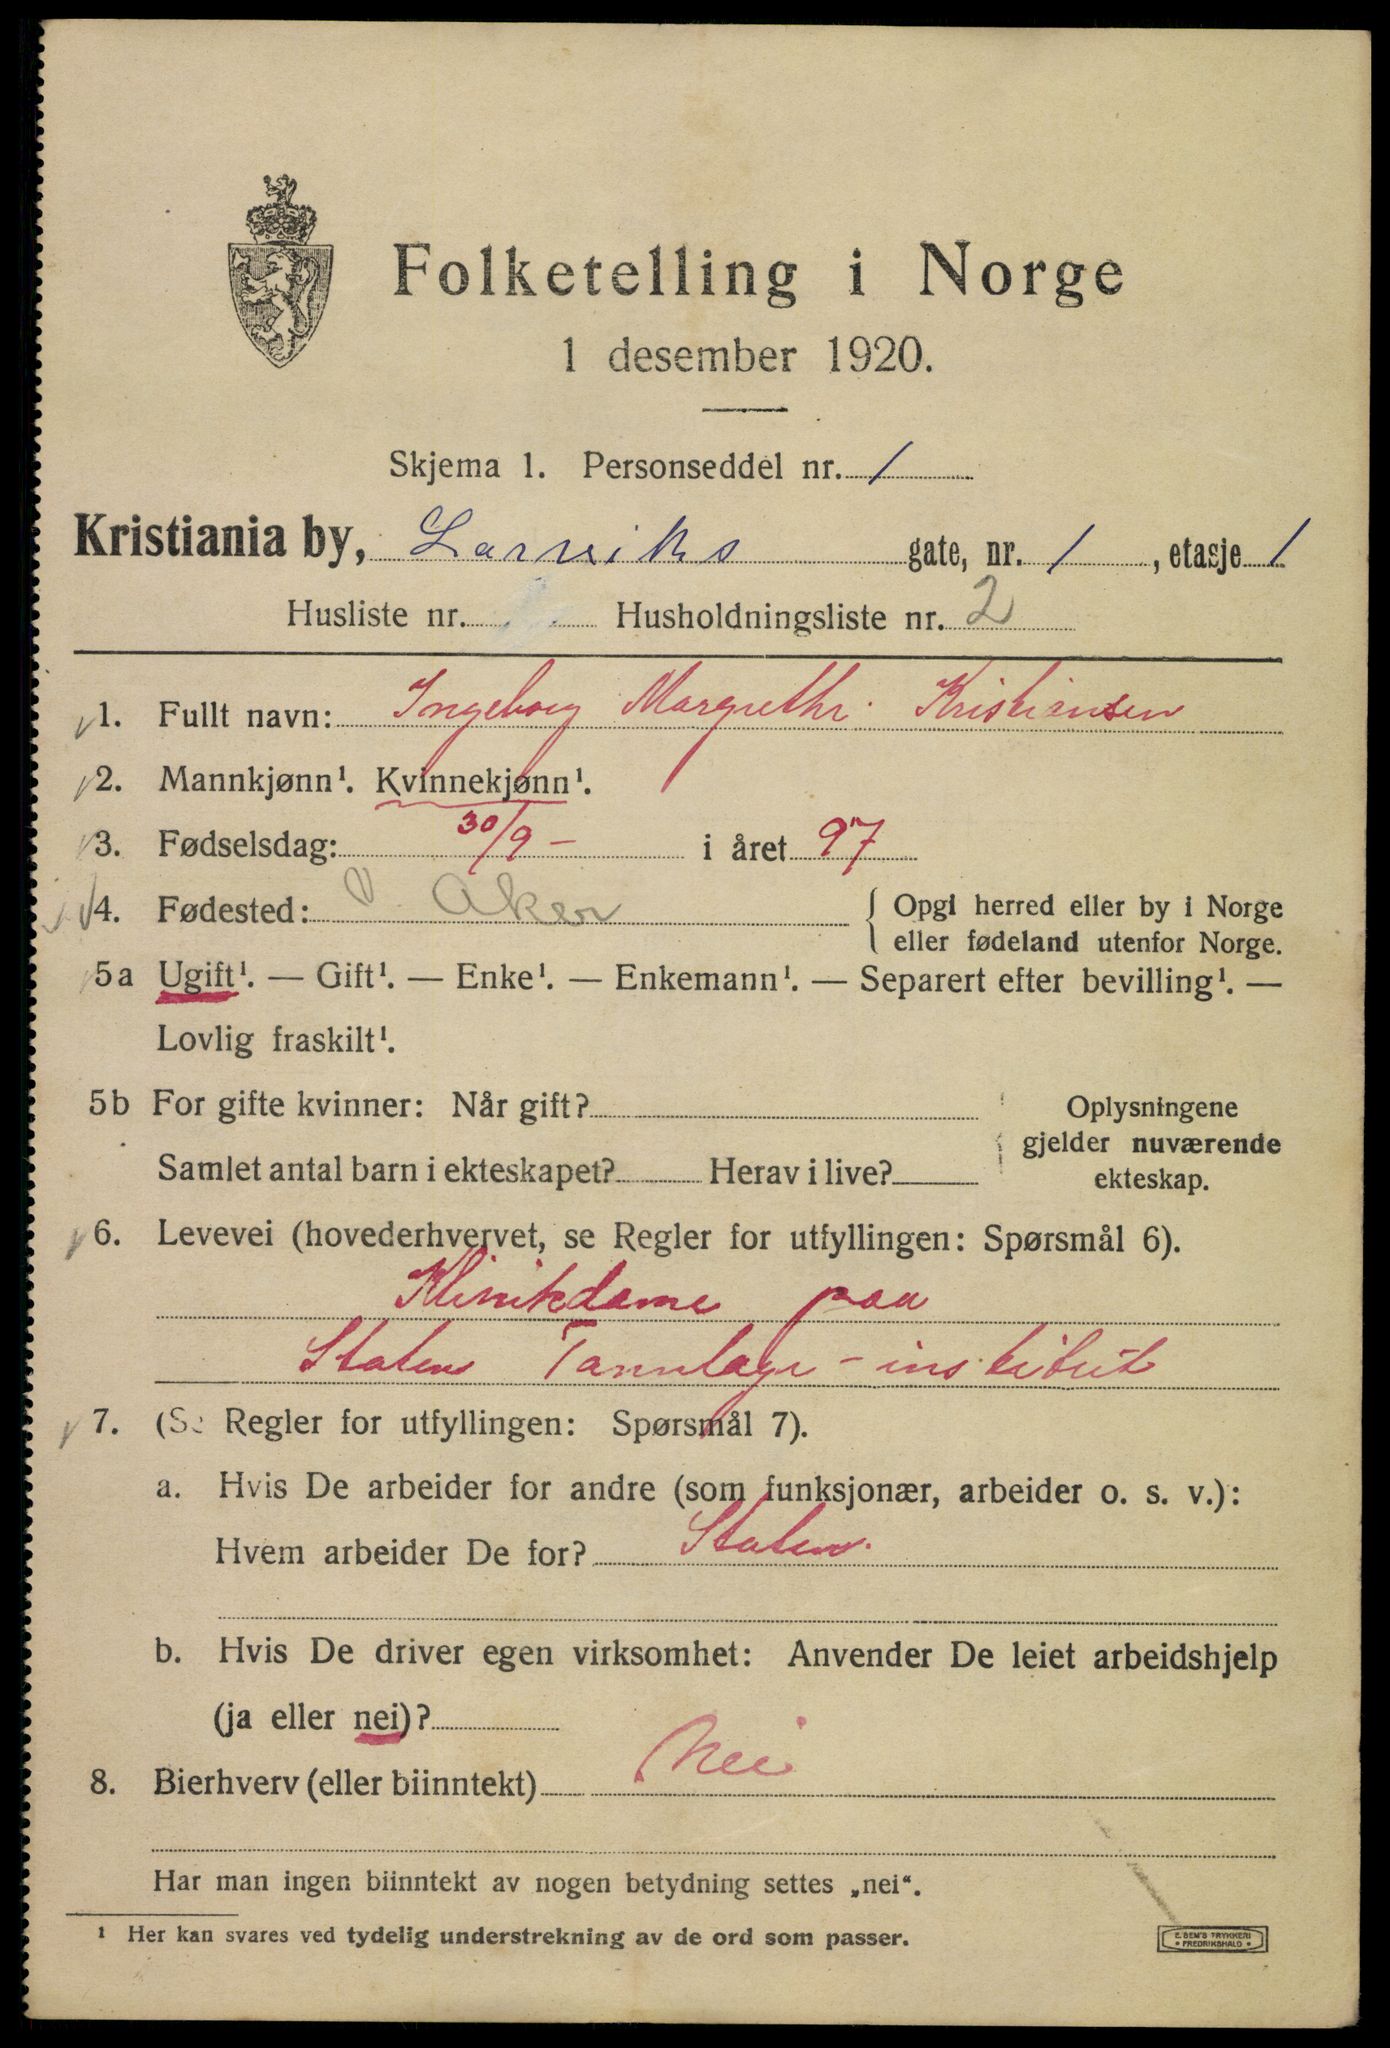 Folketelling i Norge
1 desember 1920.
Skjema 1. Personseddel nr. 1
Kristiania by, Larviks gate, nr. 1, etasje 1
Husliste nr. Husholdningsliste nr. 2
1. Fullt navn: Ingeborg Margrethe Kristiansen
2. Mannkjønn¹. Kvinnekjønn¹.
3. Fødselsdag: 30/9 - i året 97
4. Fødested: V. Aker { Opgi herred eller by i Norge
eller fødeland utenfor Norge.
5a Ugift¹. — Gift¹. — Enke¹. — Enkemann¹. — Separert efter bevilling¹. —
Lovlig fraskilt¹.
5b For gifte kvinner: Når gift? Oplysningene
gjelder nuværende
Samlet antal barn i ekteskapet? Herav i live? ekteskap.
6. Levevei (hovederhvervet, se Regler for utfyllingen: Spørsmål 6).
Klinikdame paa
Staten Tannlæge-institut
7. (Se Regler for utfyllingen: Spørsmål 7).
a. Hvis De arbeider for andre (som funksjonær, arbeider o. s. v.):
Hvem arbeider De for? Staten.
b. Hvis De driver egen virksomhet: Anvender De leiet arbeidshjelp
(ja eller nei)?
8. Bierhverv (eller biinntekt) Nei
Har man ingen biinntekt av nogen betydning settes „nei“.
¹ Her kan svares ved tydelig understrekning av de ord som passer.
E. SEM'S TRYKKERI
• FREDRIKSHALD •